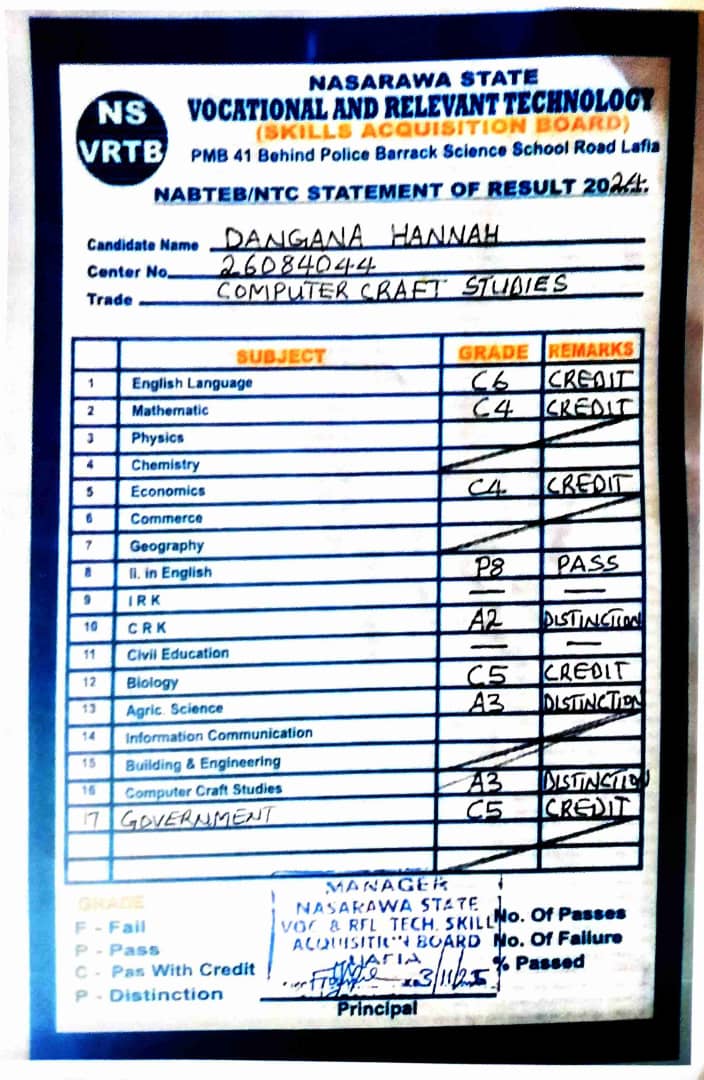 NS
VRTB
NASARAWA STATE
VOCATIONAL AND RELEVANT TECHNOLOGY
(SKILLS ACQUISITION BOARD)
PMB 41 Behind Police Barrack Science School Road Lafia
NABTEB/NTC STATEMENT OF RESULT 2024.
Candidate Name DANGANA HANNAH
Center No. 26084044
Trade COMPUTER CRAFT STUDIES
SUBJECT GRADE REMARKS
1 English Language C6 CREDIT
2 Mathematic C4 CREDIT
3 Physics
4 Chemistry
5 Economics C4 CREDIT
6 Commerce
7 Geography
8 li. in English P8 PASS
9 I R K —
10 C R K A2 DISTINCTION
11 Civil Education —
12 Biology C5 CREDIT
13 Agric. Science A3 DISTINCTION
14 Information Communication
15 Building & Engineering
16 Computer Craft Studies A3 DISTINCTION
17 GOVERNMENT C5 CREDIT
GRADE
F - Fail
P - Pass
C - Pas With Credit
P - Distinction
MANAGER
NASARAWA STATE
VOC & REL TECH. SKILL
ACQUISITION BOARD
LAFIA
Principal
No. Of Passes
No. Of Failure
% Passed